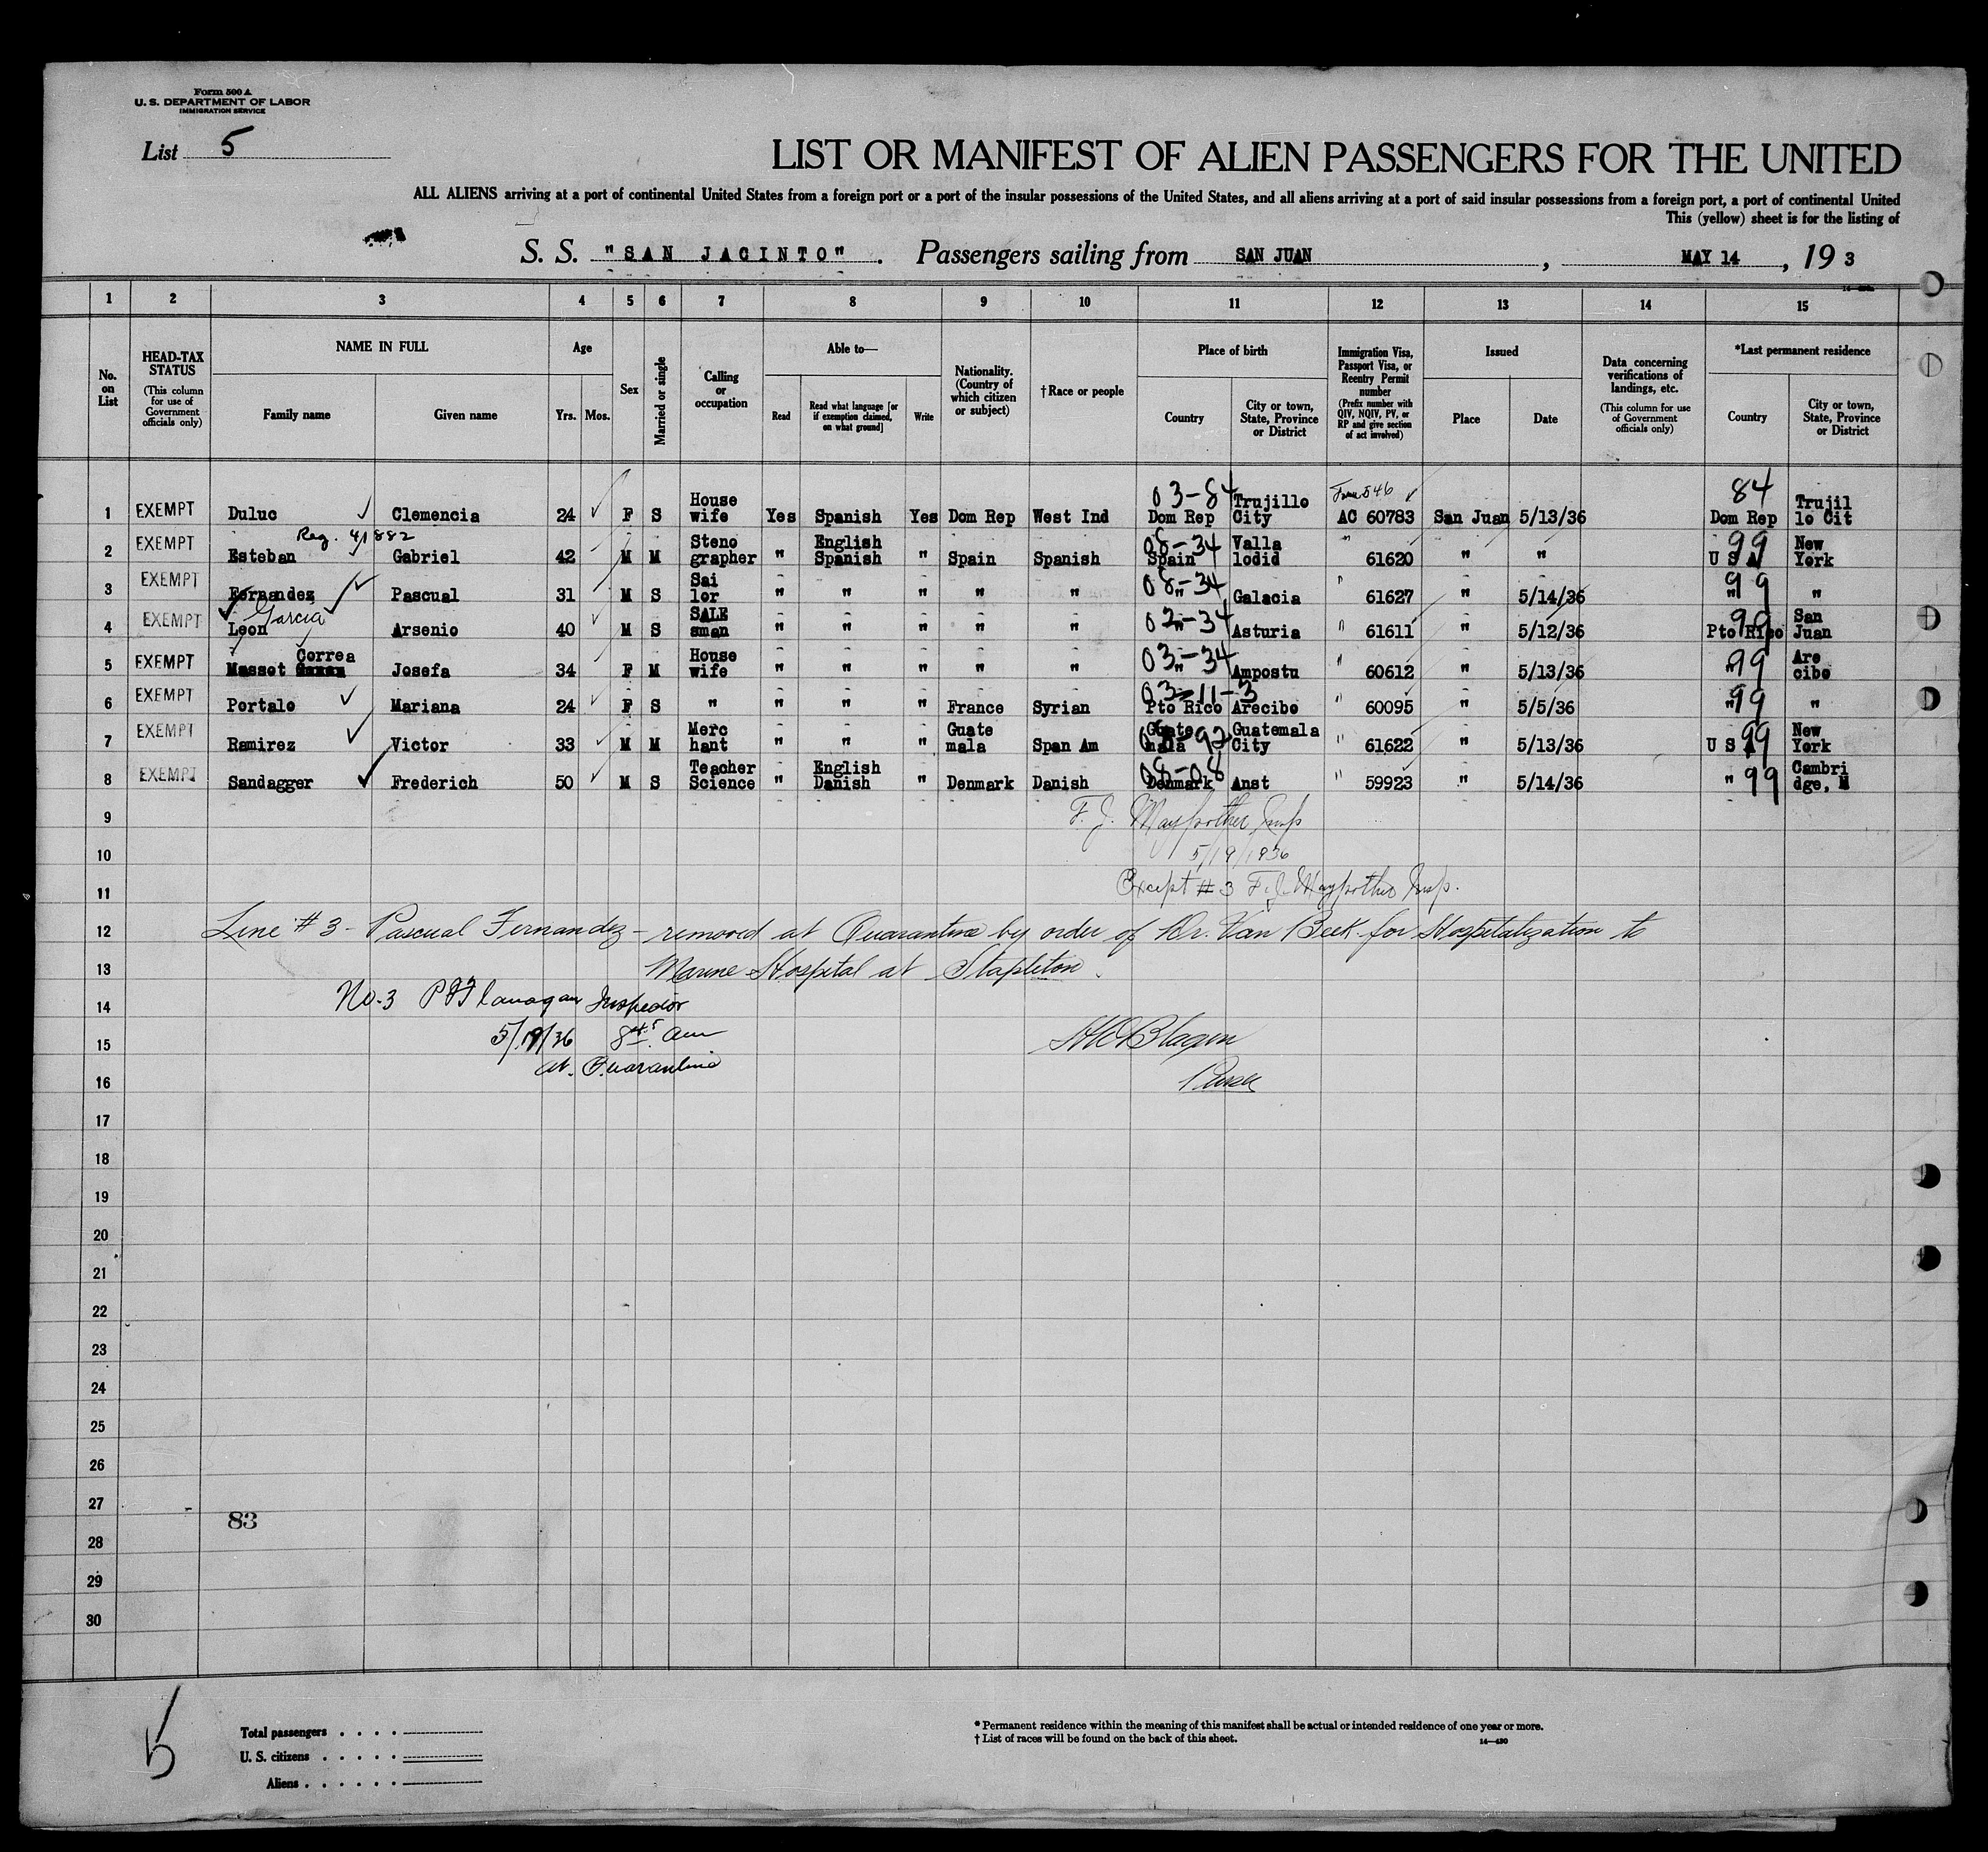 Form 500 A
U. S. DEPARTMENT OF LABOR
IMMIGRATION SERVICE
List 5
LIST OR MANIFEST OF ALIEN PASSENGERS FOR THE UNITED
ALL ALIENS arriving at a port of continental United States from a foreign port or a port of the insular possessions of the United States, and all aliens arriving at a port of said insular possessions from a foreign port, a port of continental United
This (yellow) sheet is for the listing of
S. S. "SAN JACINTO". Passengers sailing from SAN JUAN, MAY 14, 19 3
1 2 3 4 5 6 7 8 9 10 11 12 13 14 15
No. on List
HEAD-TAX STATUS
(This column for use of Government officials only)
NAME IN FULL
Family name
Given name
Age
Yrs. Mos.
Sex
Married or single
Calling or occupation
Able to—
Read
Read what language [or if exemption claimed, on what ground]
Write
Nationality. (Country of which citizen or subject)
† Race or people
Place of birth
Country
City or town, State, Province or District
Immigration Visa, Passport Visa, or Reentry Permit number
(Prefix number with QIV, NQIV, PV, or RP and give section of act involved)
Issued
Place
Date
Data concerning verifications of landings, etc.
(This column for use of Government officials only)
*Last permanent residence
Country
City or town, State, Province or District
03-84 Form 546 84
1 EXEMPT Duluc Clemencia 24 F S House wife Yes Spanish Yes Dom Rep West Ind Dom Rep Trujillo City AC 60783 San Juan 5/13/36 Dom Rep Trujil lo Cit
Reg. 41882
2 EXEMPT Esteban Gabriel 42 M M Steno grapher " English Spanish " Spain Spanish 08-34 Spain Valla lodid " 61620 " " 99 U S A New York
3 EXEMPT Fernandez Pascual 31 M S Sai lor " " " " " 08-34 " Galacia " 61627 " 5/14/36 99 " "
Garcia
4 EXEMPT Leon Arsenio 40 M S SALE sman " " " " " 02-34 " Asturia " 61611 " 5/12/36 99 Pto Rico San Juan
Correa
5 EXEMPT Masset Josefa 34 F M House wife " " " " " 03-34 " Ampostu " 60612 " 5/13/36 99 " Are cibo
6 EXEMPT Portalo Mariana 24 F S " " " " France Syrian 03-11-3 Pto Rico Arecibo " 60095 " 5/5/36 99 " "
7 EXEMPT Ramirez Victor 33 M M Merc hant " " " Guate mala Span Am Guate mala Guatemala City " 61622 " 5/13/36 99 U S A New York
8 EXEMPT Sandagger Frederich 50 M S Teacher Science " English Danish " Denmark Danish 08-08 Denmark Anst " 59923 " 5/14/36 99 " Cambri dge, M
9 F. J. Maypother Insp
10 5/19/1936
11 Except #3 F. J. Maypother Insp.
12 Line #3 - Pascual Fernandez - removed at Quarantine by order of Dr. Van Beek for Hospitalization to
13 Marine Hospital at Stapleton.
14 No. 3 Flanagan Inspector
15 5/19/36 am
16 at Quarantine
17
18
19
20
21
22
23
24
25
26
27
83
28
29
30
5
Total passengers
U. S. citizens
Aliens
* Permanent residence within the meaning of this manifest shall be actual or intended residence of one year or more.
† List of races will be found on the back of this sheet.
14—430